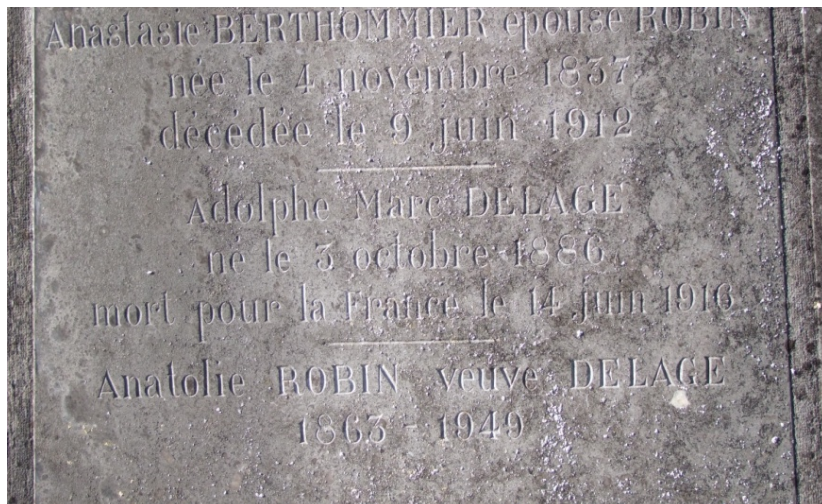 Anastasie BERTHOMMIER épouse ROBIN
née le 4 novembre 1837
décédée le 9 juin 1912
Adolphe Marc DELAGE
né le 3 octobre 1886
mort pour la France le 14 juin 1916
Anatolie ROBIN veuve DELAGE
1863 - 1949